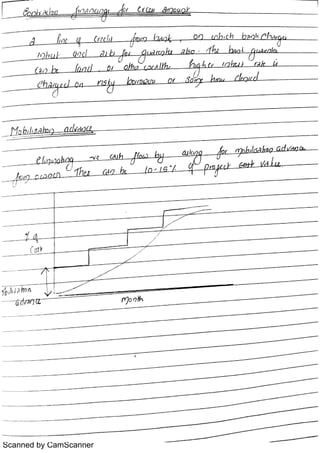 financing for excess Amount
a line of credit from bank, on which bank charge
intrest and asks for guarantee also. The bank guarantee
can be land or other wealth. higher intrest rate is
charged on risky borrower or
Mobilisation advance
eliminating -ve cash flow by asking for mobilisation advance
from owner. They can be 10-15% of project cost value.
% of
Cost
Mobilisation
advance
Month
Scanned by CamScanner